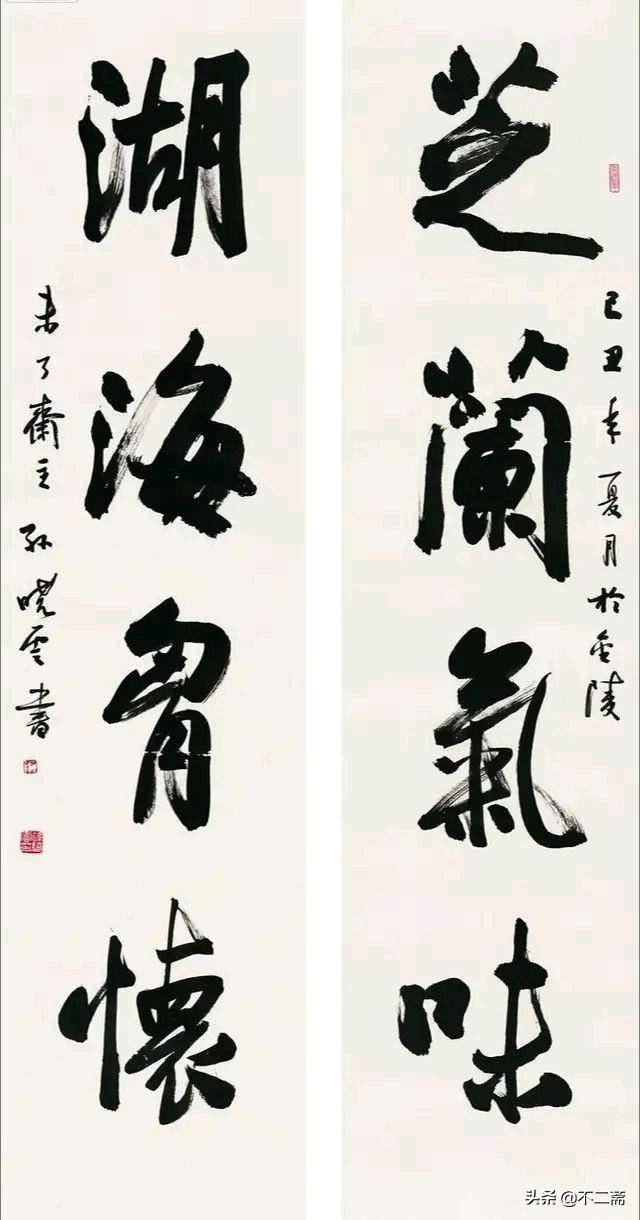 芝蘭氣味
己丑年夏月於金陵
湖海胷懷
未了齋主孫曉雲書
头条 @不二斋